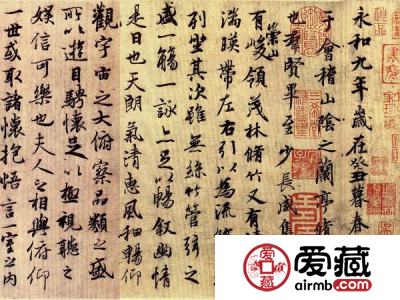 永和九年歲在癸丑暮春
于會稽山陰之蘭亭脩
也群賢畢至少長咸集
崇山
有峻領茂林脩竹又有清
湍暎帶左右引以為流
列坐其次雖無絲竹管弦之
盛一觴一詠亦足以暢敘幽情
是日也天朗氣清惠風和暢仰
觀宇宙之大俯察品類之盛
所以遊目騁懷足以極視聽之
娛信可樂也夫人之相與俯仰
一世或取諸懷抱悟言一室之内
爱藏
www.airmb.com